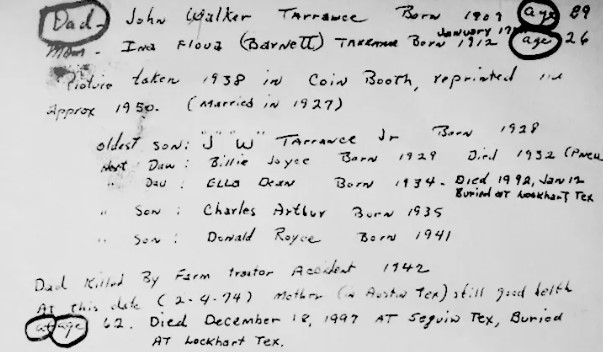 Dad - John Walker Tarrance Born 1909 age 29
January
Mom - Ina Floua (Barnett) Tarrance Born 1912 age 26
Picture taken 1938 in Coin Booth, reprinted in
Approx 1950. (Married in 1927)
oldest son: "J" "W" Tarrance Jr Born 1928
Next Dau: Billie Joyce Born 1929 Died 1932 (Pneu
" Dau: Ella Dean Born 1934 - Died 1992, Jan 12
Buried at Lockhart Tex
" Son: Charles Arthur Born 1935
" Son: Donald Royce Born 1941
Dad Killed By Farm tractor Accident 1942
At this date (2-4-74) Mother (in Austin Tex) still good helth
at age 62. Died December 18, 1997 AT Seguin Tex, Buried
AT Lockhart Tex.